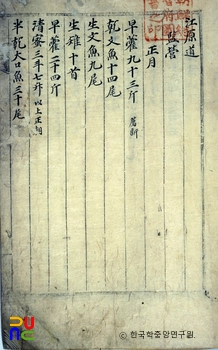 江原道
監營
正月
早藿九十三斤 舊新
乾文魚十四尾
生文魚九尾
生雉十首
早藿二十四斤
淸蜜三升七合 以上正朝
半乾大口魚三十尾
© 한국학중앙연구원